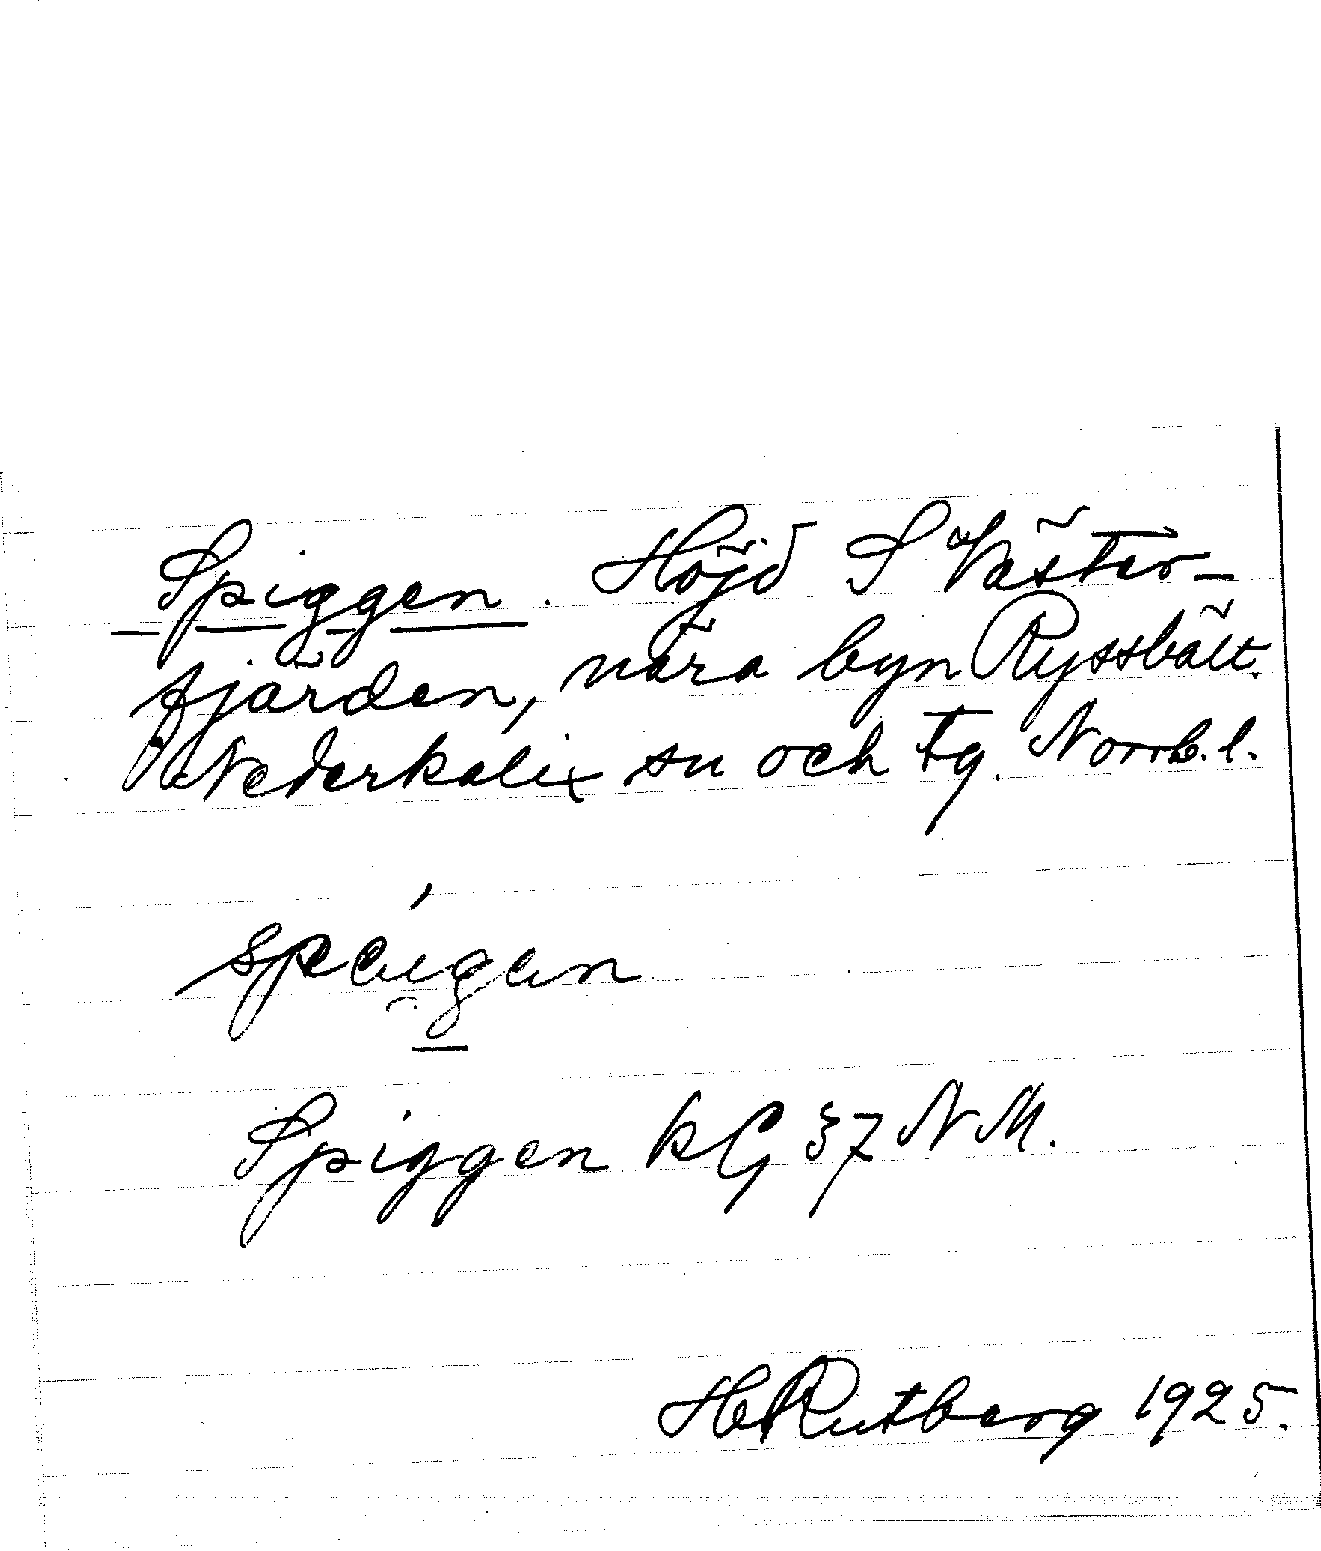 Spiggen. Höjd S Väster-
fjärden, nära byn Ryssbält.
Nederkalix sn och tg. Norrb. l.
Spiggen kG 37 NM.
H Rutberg 1925.